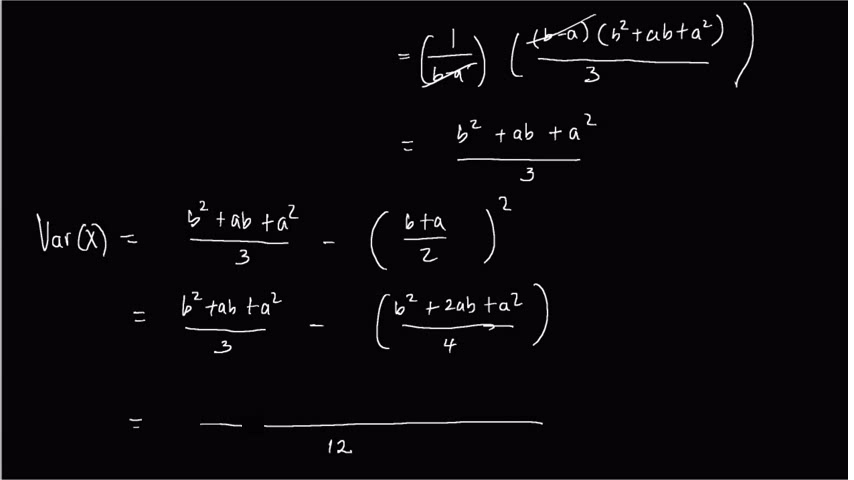 = (1/(b-a)) ((b-a)(b²+ab+a²)/3)
= (b² + ab + a²)/3
Var(X) = (b²+ab+a²)/3 - ((b+a)/2)²
= (b²+ab+a²)/3 - ((b²+2ab+a²)/4)
= /12